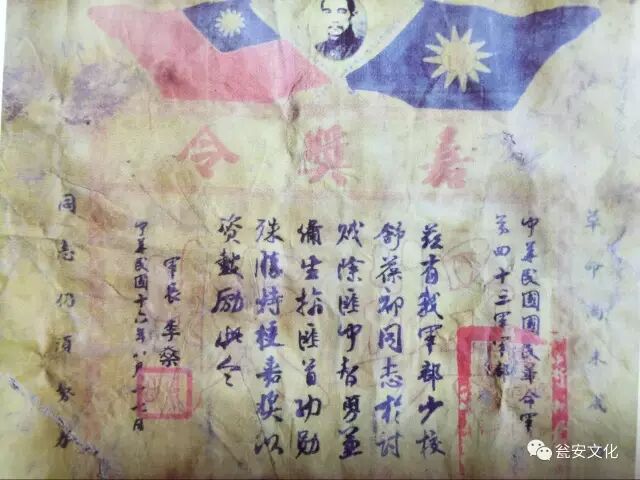 嘉獎令
革命尚未成
中華民國國民革命軍
第四十三軍軍部
茲有我軍部少校
舒葆同志於討
賊除匪中智勇兼
生擒匪首功勳
殊勝特授嘉獎以
資鼓勵此令
軍長 李燊
中華民國十六年八月十日
同志仍須努力
瓮安文化